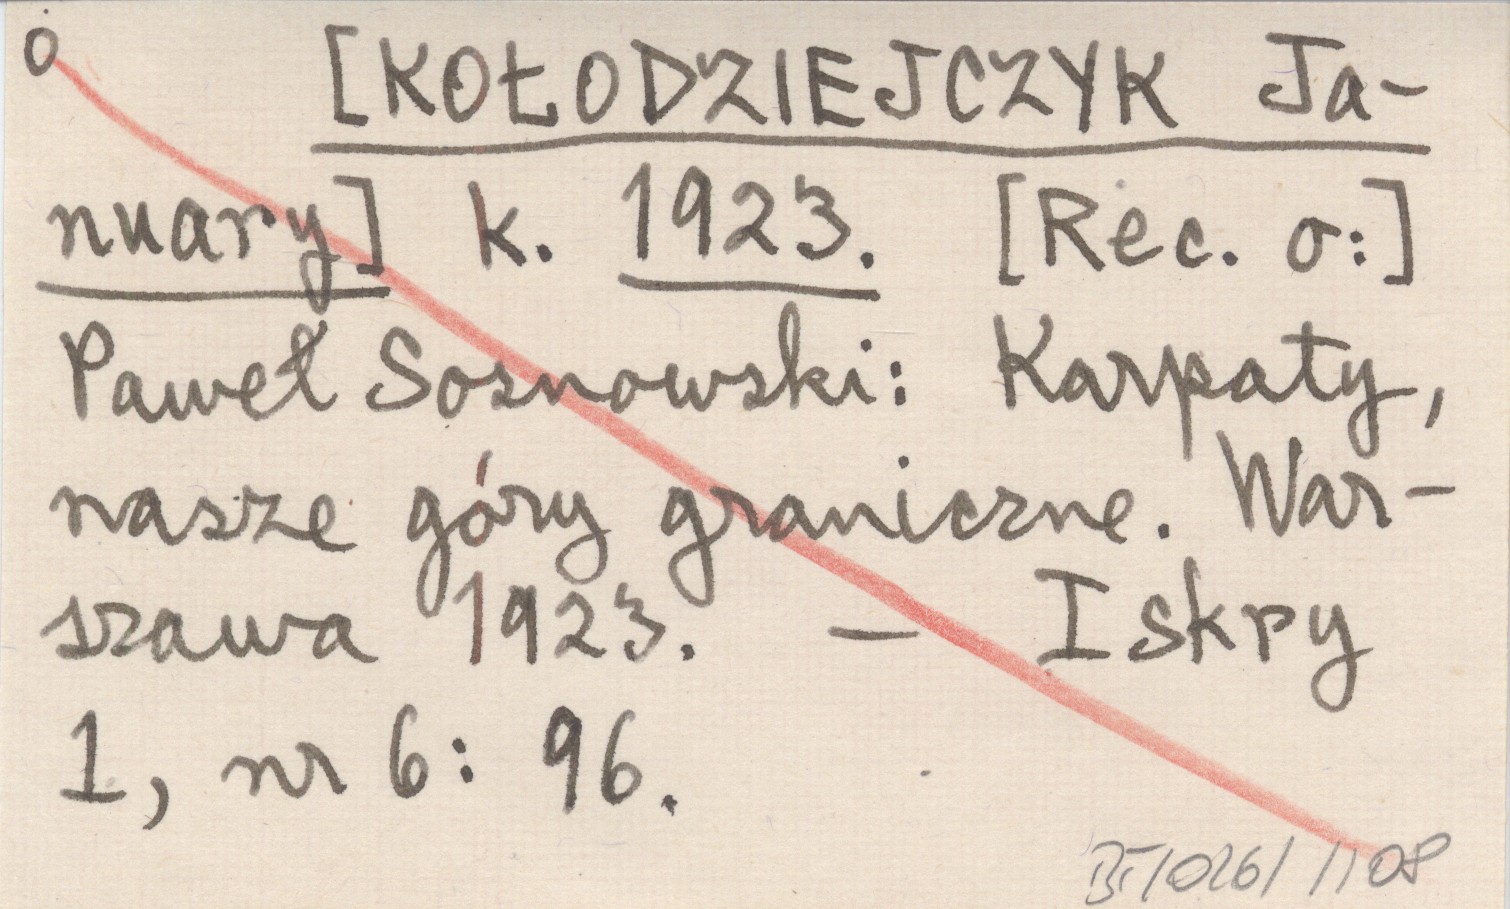 o [KOŁODZIEJCZYK Ja-
nuary] k. 1923. [Rec. o:]
Paweł Sosnowski: Karpaty,
nasze góry graniczne. War-
szawa 1923. — Iskry
1, nr 6: 96.
BT/026/ 1108